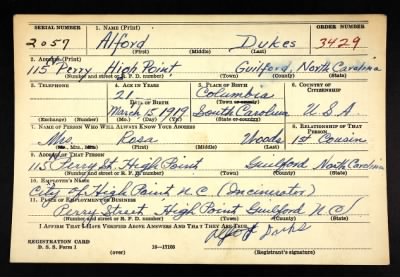 SERIAL NUMBER 1. NAME (Print) ORDER NUMBER
2057 Alford Dukes 3429
(First) (Middle) (Last)
2. ADDRESS (Print)
115 Perry High Point, Guilford, North Carolina
(Number and street or R. F. D. number) (Town) (County) (State)
3. TELEPHONE 4. AGE IN YEARS 5. PLACE OF BIRTH 6. COUNTRY OF CITIZENSHIP
21 Columbia
DATE OF BIRTH (Town or county)
March 15, 1919 South Carolina U.S.A
(Exchange) (Number) (Mo.) (Day) (Yr.) (State or country)
7. NAME OF PERSON WHO WILL ALWAYS KNOW YOUR ADDRESS 8. RELATIONSHIP OF THAT PERSON
Mrs. Rosa Woods 1st Cousin
(Mr., Mrs., Miss) (First) (Middle) (Last)
9. ADDRESS OF THAT PERSON
115 Perry St. High Point Guilford North Carolina
(Number and street or R. F. D. number) (Town) (County) (State)
10. EMPLOYER'S NAME
City of High Point, N.C. (Incinerator)
11. PLACE OF EMPLOYMENT OR BUSINESS
Perry Street, High Point Guilford N.C.
(Number and street or R. F. D. number) (Town) (County) (State)
I AFFIRM THAT I HAVE VERIFIED ABOVE ANSWERS AND THAT THEY ARE TRUE.
REGISTRATION CARD
D. S. S. Form 1 (over) 16—17105 (Registrant's signature)